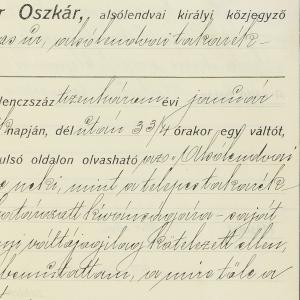 r Oszkár, alsólendvai királyi közjegyző
as úr, alsólendvai takarék-
lenczszáz tizenhárom évi január
napján, délután 3 3/4 órakor egy váltót,
ulsó oldalon olvasható azo. Alsólendvai
neki, mint a telepes takarék
kívánságára - saját
váltójogilag kötelezett ellen,
bemutattam, a mire tőle a